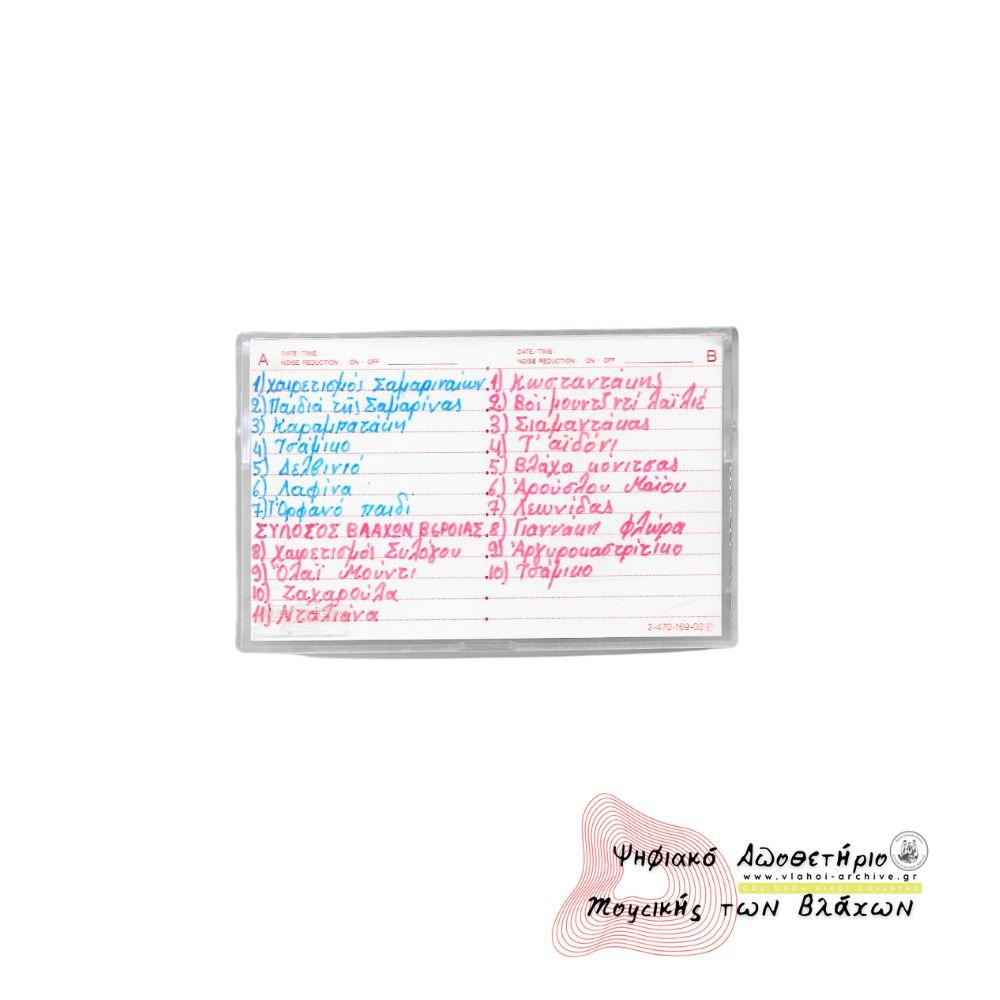 A
DATE/TIME
NOISE REDUCTION: ON - OFF
1) Χαιρετισμός Σαμαριναίων
2) Παιδιά τῆς Σαμαρίνας
3) Καραμπατάκη
4) Τσάμικο
5) Δελβινιό
6) Λαφίνα
7) Τ' Ὀρφανό παιδί
ΣΥΛΟΣΟΣ ΒΛΑΧΩΝ ΒΕΡΟΙΑΣ
8) Χαιρετισμός Συλόγου
9) Ὄλαϊ Μούντι
10) Ζαχαρούλα
11) Νταλιάνα
DATE/TIME:
NOISE REDUCTION: ON - OFF
B
1) Κωσταντάκης
2) Βοϊ μουντζντί λαϊλιέ
3) Σιαμαντάκας
4) Τ' αϊδόνι
5) Βλάχα μόνιτσας
6) Ἀρούσλου Μαΐου
7) Λεωνίδας
8) Γιαννάκη φλώρα
9) Ἀργυροκαστρίτικο
10) Τσάμικο
2-470-169-02 Ⓟ
Ψηφιακό Αποθετήριο
www.vlahoi-archive.gr
CDs DVDs Vinyl Cassetes
Μουσικής των Βλάχων